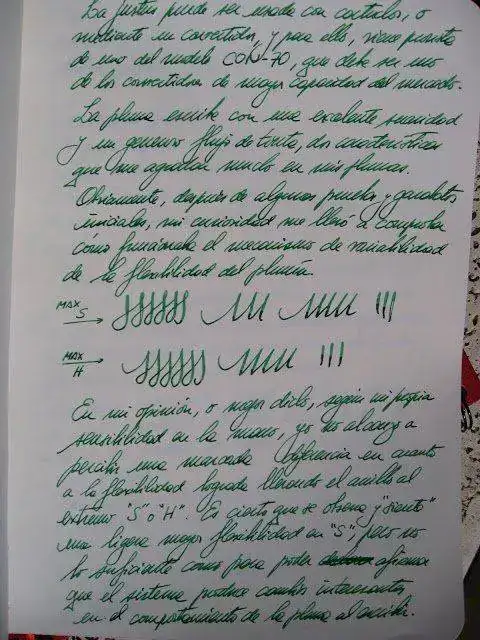 La Justus puede ser usada con cartuchos, o
mediante un convertidor, y para ello, viene provista
de uno del modelo CON-70, que debe ser uno
de los convertidores de mayor capacidad del mercado.
La pluma escribe con una excelente suavidad
y un generoso flujo de tinta, dos características
que me agradan mucho en mis plumas.
Obviamente, después de algunas pruebas y garabatos
iniciales, mi curiosidad me llevó a comprobar
cómo funcionaba el mecanismo de variabilidad
de la flexibilidad del plumín.
MAX S
MAX H
En mi opinión, o mejor dicho, según mi propia
sensibilidad en la mano, yo no alcanzo a
percibir una marcada diferencia en cuanto
a la flexibilidad lograda llevando el anillo al
extremo "S" o "H". Es cierto que se observa y "siente"
una ligera mayor flexibilidad en "S", pero no
lo suficiente como para poder afirmar
que el sistema produce cambios interesantes
en el comportamiento de la pluma al escribir.